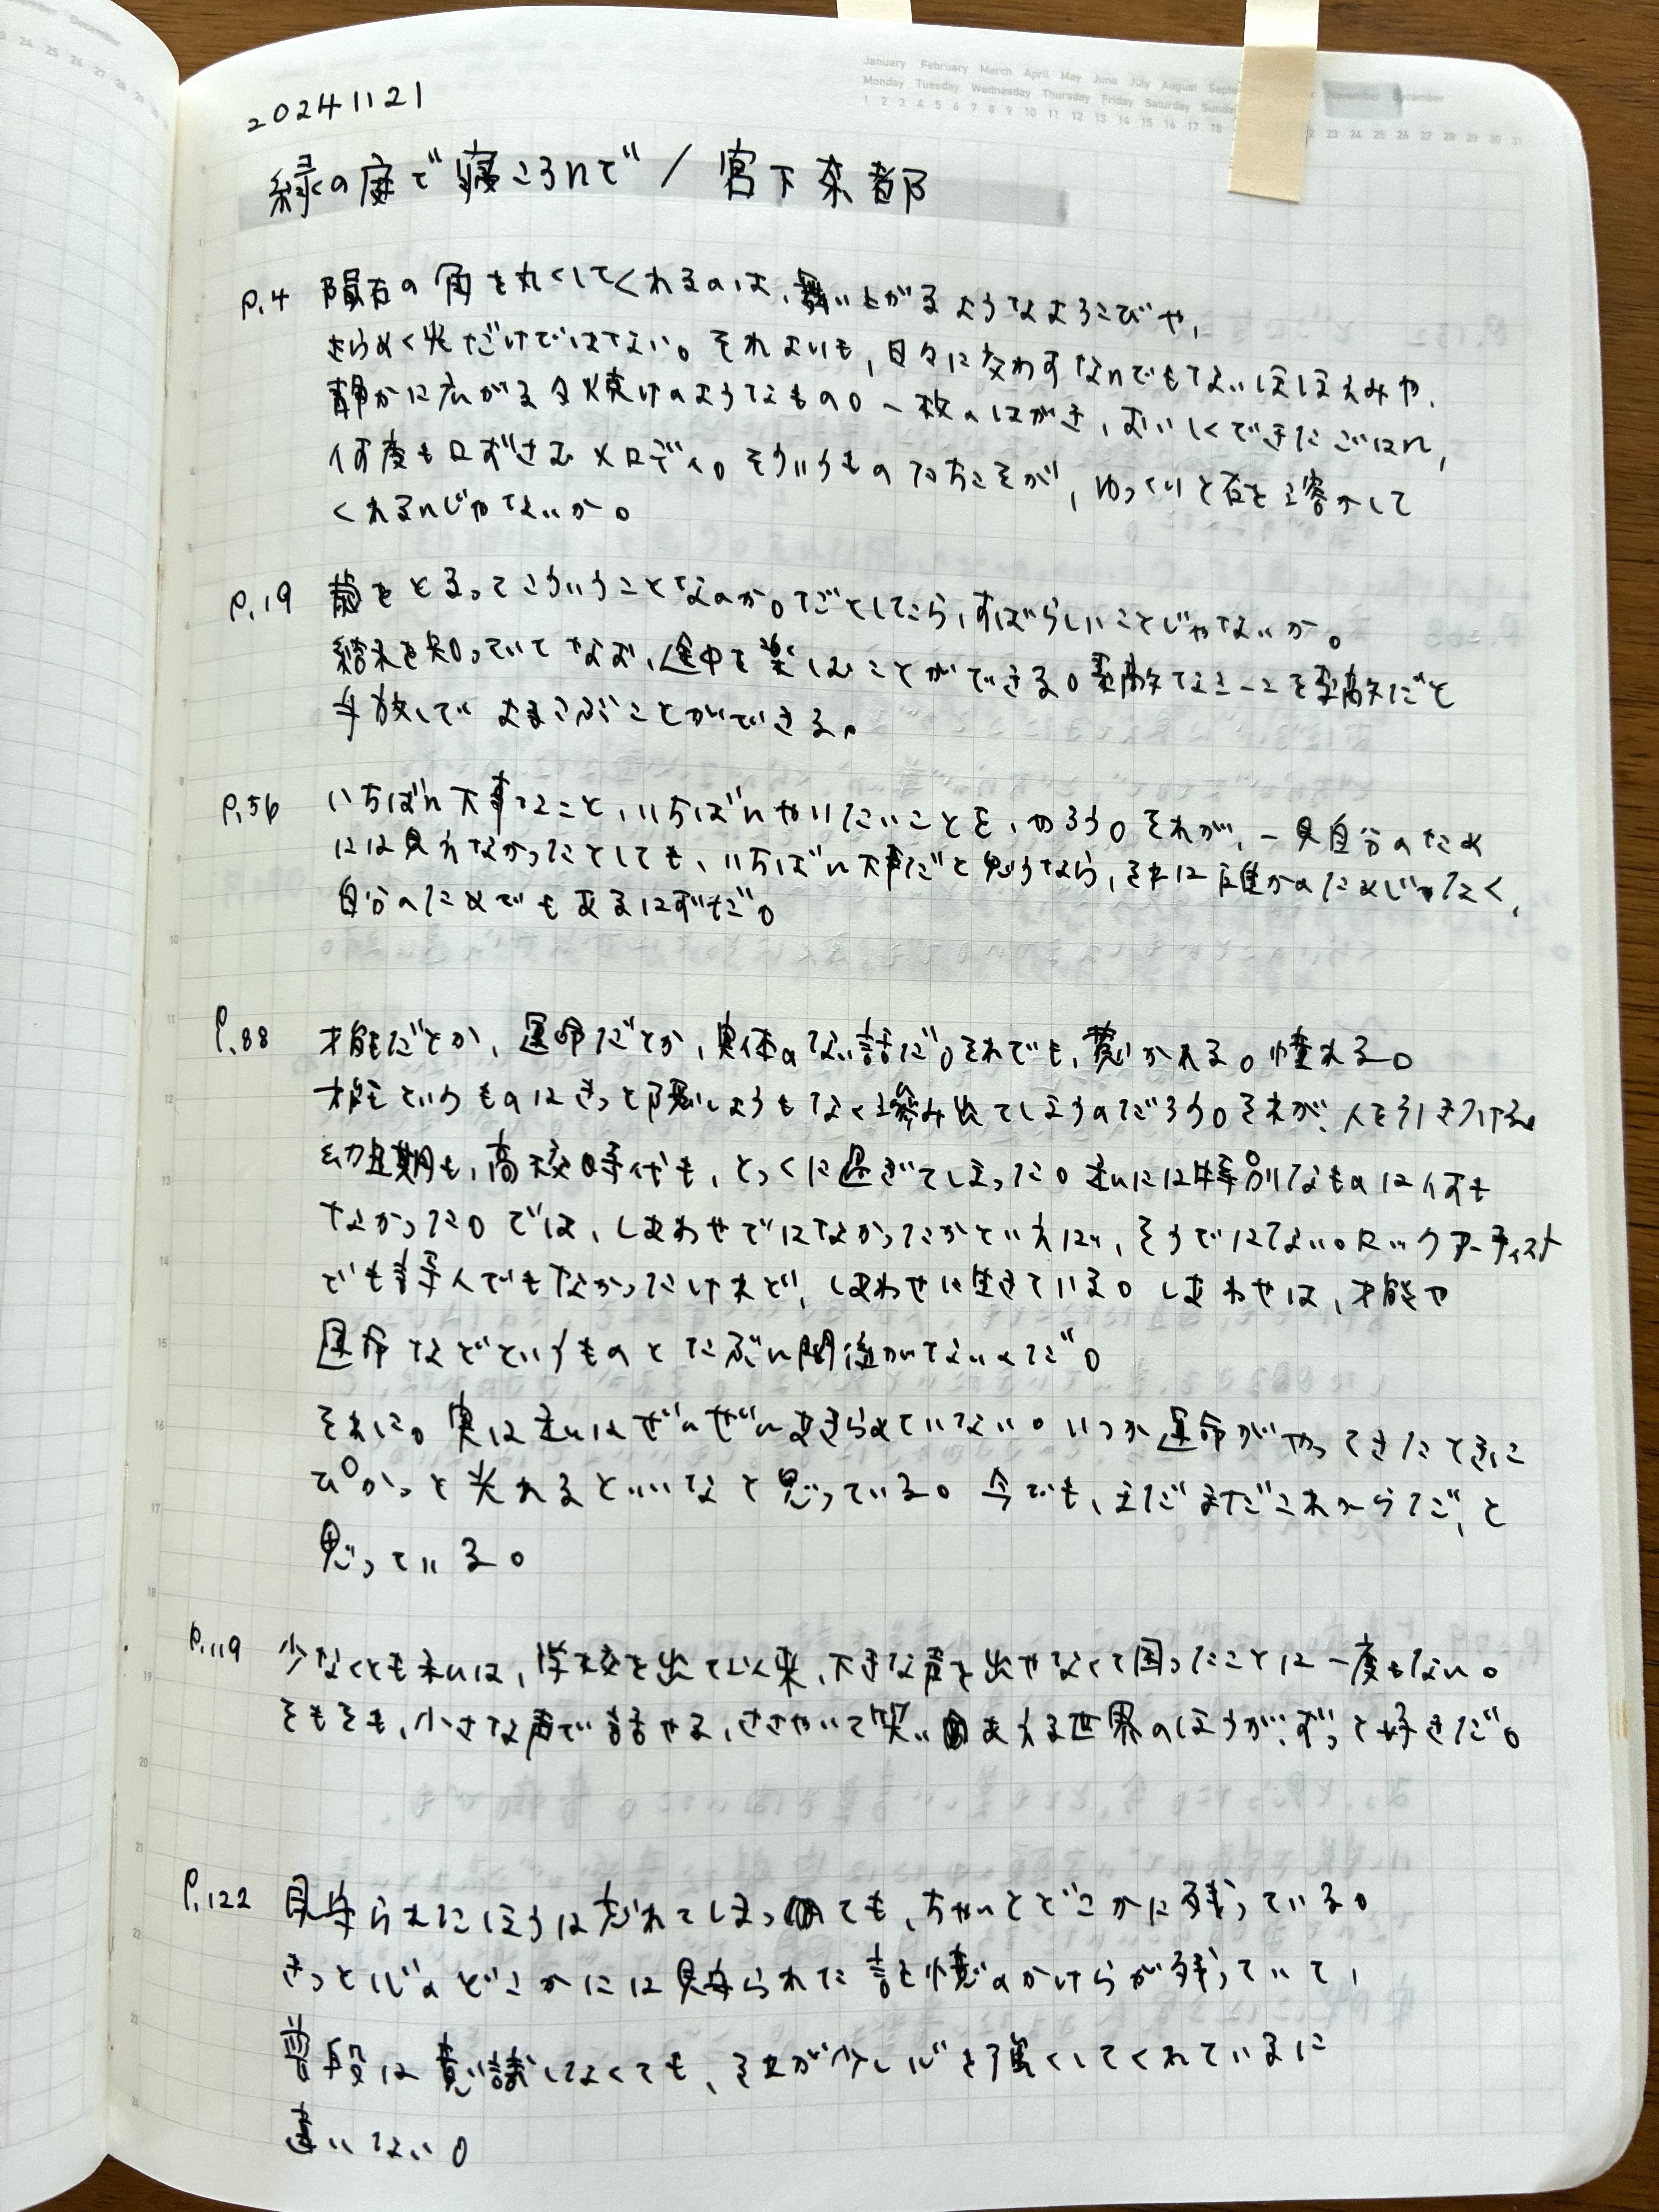 December
January February March April May June July August
Monday Tuesday Wednesday Thursday Friday Saturday
1 2 3 4 5 6 7 8 9 10 11 12 13 14 15 16 17 18 22 23 24 25 26 27 28 29 30 31
20241121
緑の庭で寝ころんで / 宮下奈都
P.4 隕石の角を丸くしてくれるのは、舞い上がるようなよろこびや、
きらめく光だけではない。それよりも、日々に交わすなんでもないほほえみや、
静かに広がる夕焼けのようなもの。一枚のはがき、おいしくできたごはん、
何度も口ずさむメロディ。そういうものたちこそが、ゆっくりと石を溶かして
くれるんじゃないか。
P.19 歳をとるってこういうことなのか。だとしたら、すばらしいことじゃないか。
結末を知っていてなお、途中を楽しむことができる。素敵なことを素敵だと
手放しでよろこぶことができる。
P.56 いちばん大事なこと、いちばんやりたいことを、やろう。それが、一見自分のため
には見えなかったとしても、いちばん大事だと思うなら、それは誰かのためじゃなく、
自分のためでもあるはずだ。
P.88 才能だとか、運命だとか、実体のない話だ。それでも、惹かれる。憧れる。
才能というものはきっと隠しようもなく滲み出てしまうのだろう。それが、人を引きつける。
幼児期も、高校時代も、とっくに過ぎてしまった。私には特別なものは何も
なかった。では、しあわせではなかったかといえば、そうではない。ロックアーティスト
でも詩人でもなかったけれど、しあわせに生きている。しあわせは、才能や
運命などというものとたぶん関係がないんだ。
それに。実は私はぜんぜんあきらめていない。いつか運命がやってきたときに
ぴかっと光れるといいなと思っている。今でも、まだまだこれからだ、と
思っている。
P.119 少なくとも私は、学校を出て以来、大きな声を出せなくて困ったことは一度もない。
そもそも、小さな声で話せる、ささやいて笑いあえる世界のほうが、ずっと好きだ。
P.122 見守られたほうは忘れてしまっても、ちゃんとどこかに残っている。
きっと心のどこかには見守られた記憶のかけらが残っていて、
普段は意識しなくても、それが少し心を強くしてくれているに
違いない。